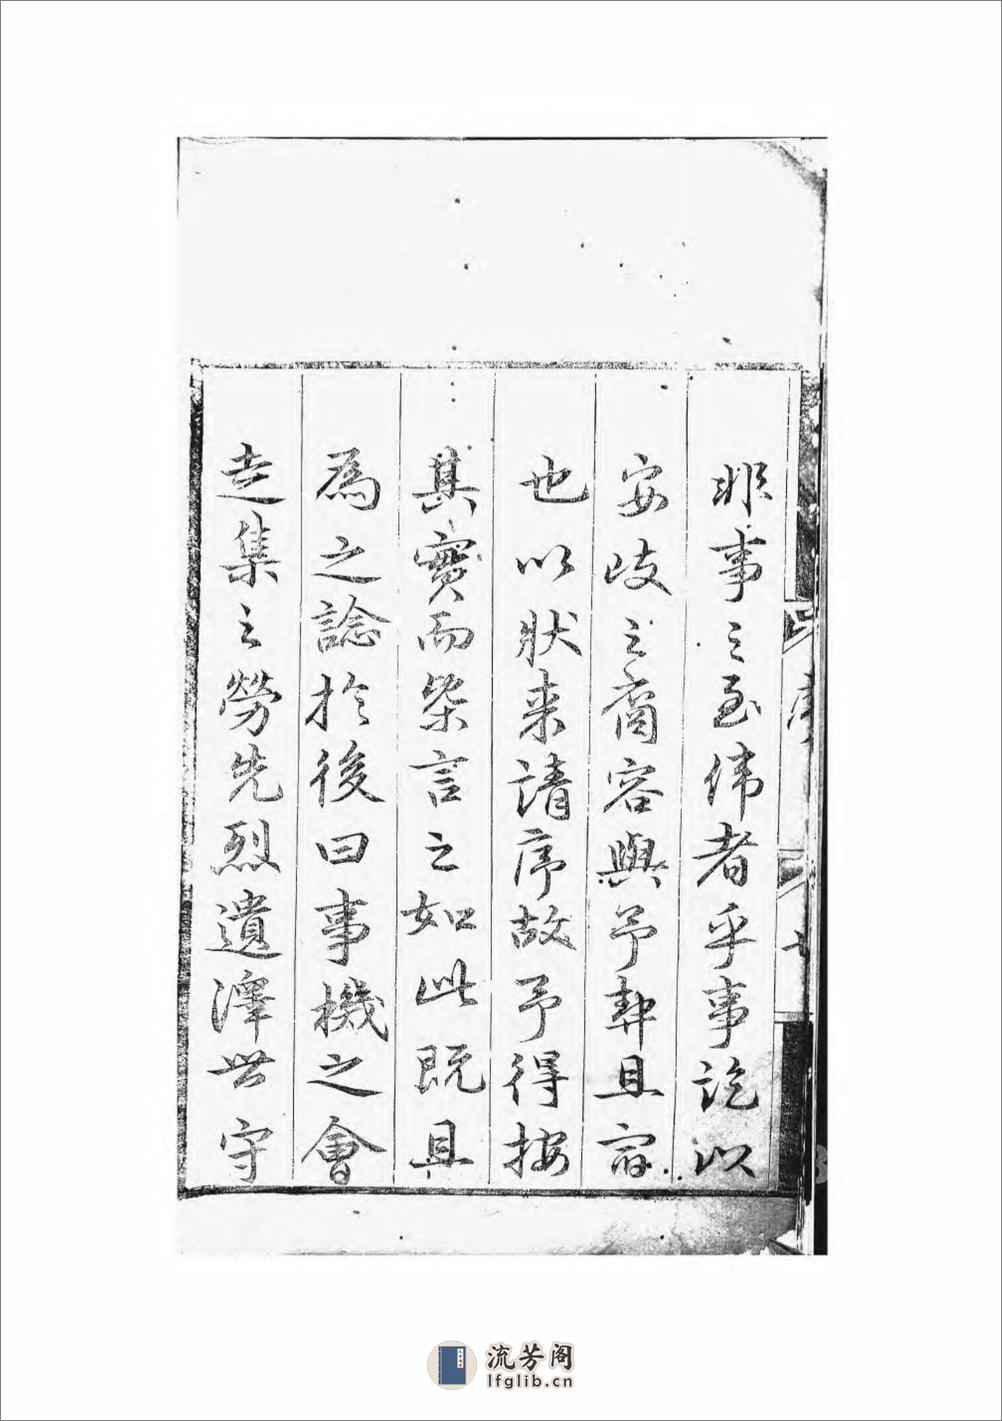 非事之至偉者乎事訖以
安岐之商容與予契且
也以狀來請序故予得按
其實而槩言之如此既具
為之諗於後曰事機之會
走集之勞先烈遺澤世守
流芳阁
lfglib.cn